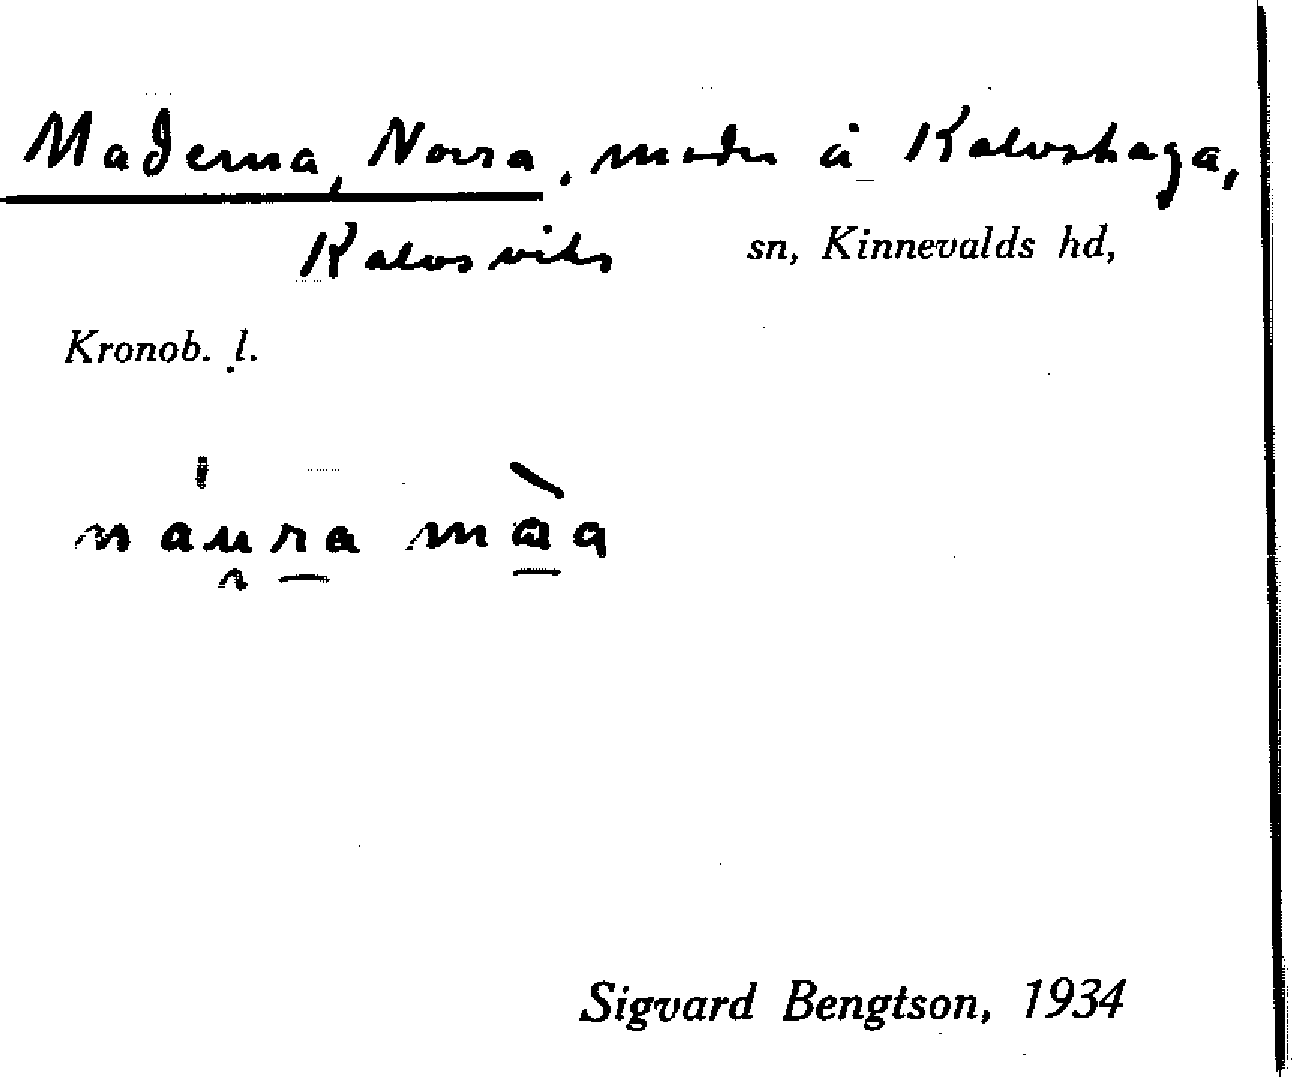 Maderna, Norra, mader å Kalvshaga,
Kalvsviks sn, Kinnevalds hd,
Kronob. l.
Sigvard Bengtson, 1934